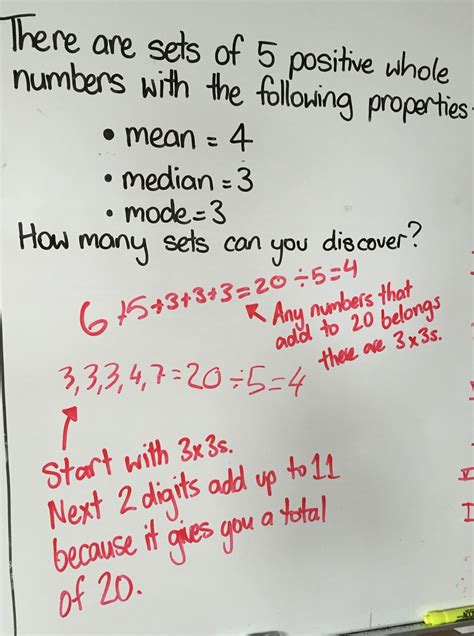 There are sets of 5 positive whole
numbers with the following properties
• mean = 4
• median = 3
• mode = 3
How many sets can you discover?
6+5+3+3+3=20÷5=4
Any numbers that
add to 20 belongs
there are 3x3s.
3,3,3,4,7=20÷5=4
Start with 3x3s.
Next 2 digits add up to 11
because it gives you a total
of 20.